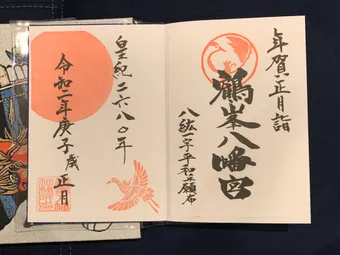 年賀正月詣
鶴峯八幡宮
八紘一宇平和立願布
皇紀二六八〇年
令和二年庚子歳正月